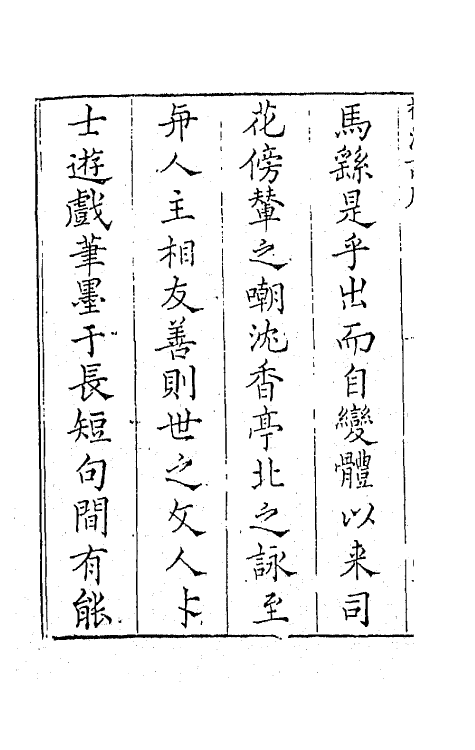 馬繇是乎出而自變體以来司
花傍輦之嘲沈香亭北之詠至
與人主相友善則世之文人卜
士遊戲筆墨于長短句間有能